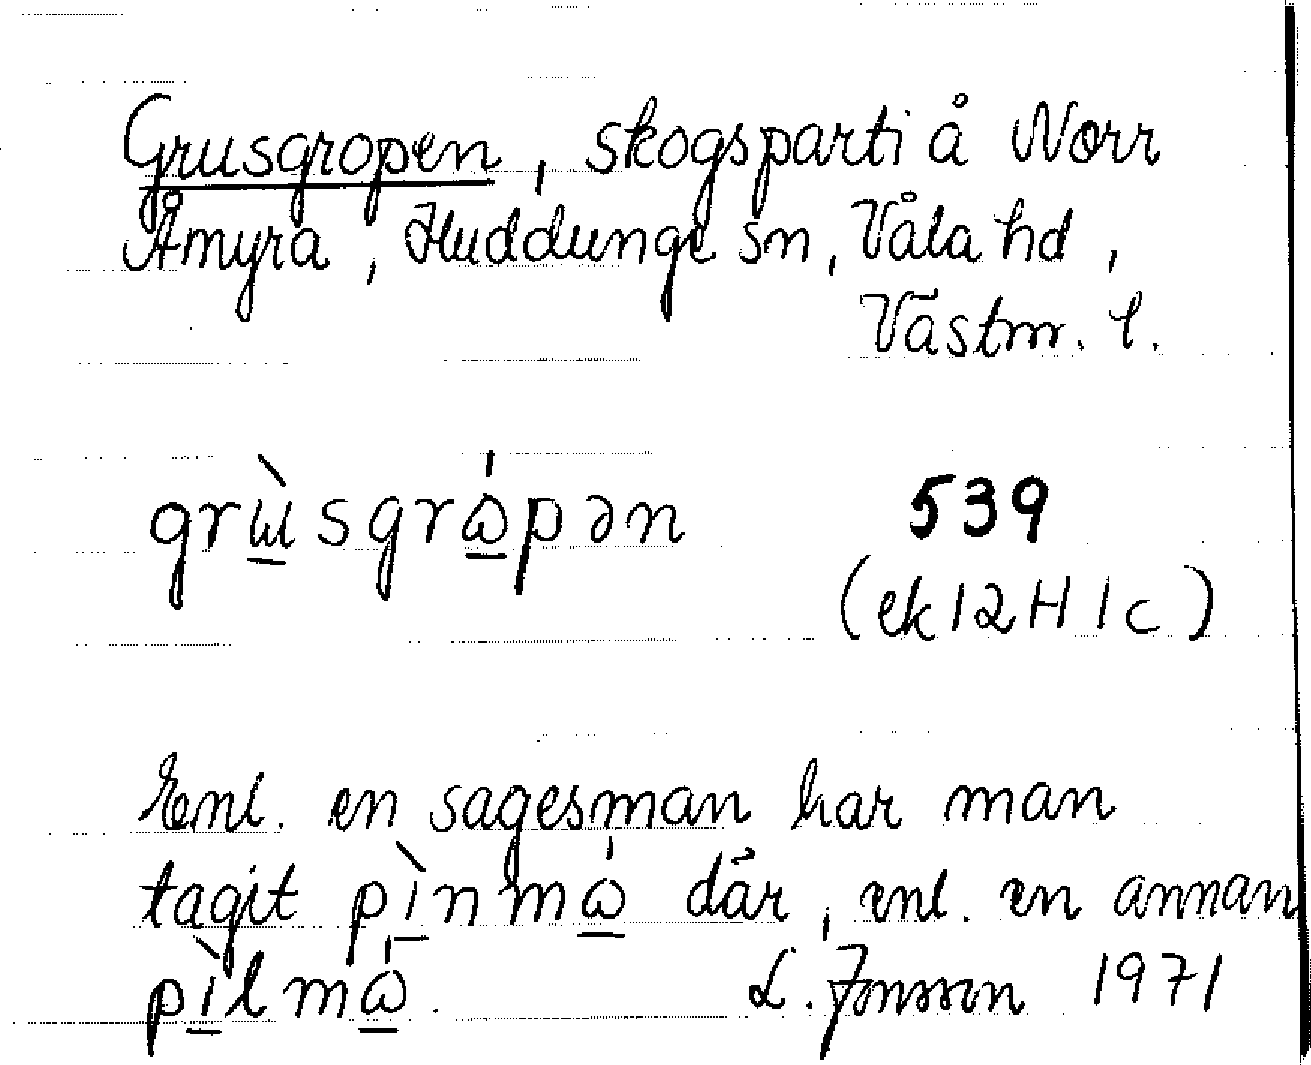 Grusgropen, skogsparti å Norr
Åmyra, Huddunge sn, Våla hd,
Västm. l.
grɯ̲̀sgrώ̲pən 539
(ek 12 H 1 c)
Enl. en sagesman har man
tagit pì̲nmώ̲ där, enl. en annan
pì̲lmώ̲. L. Jonsson 1971